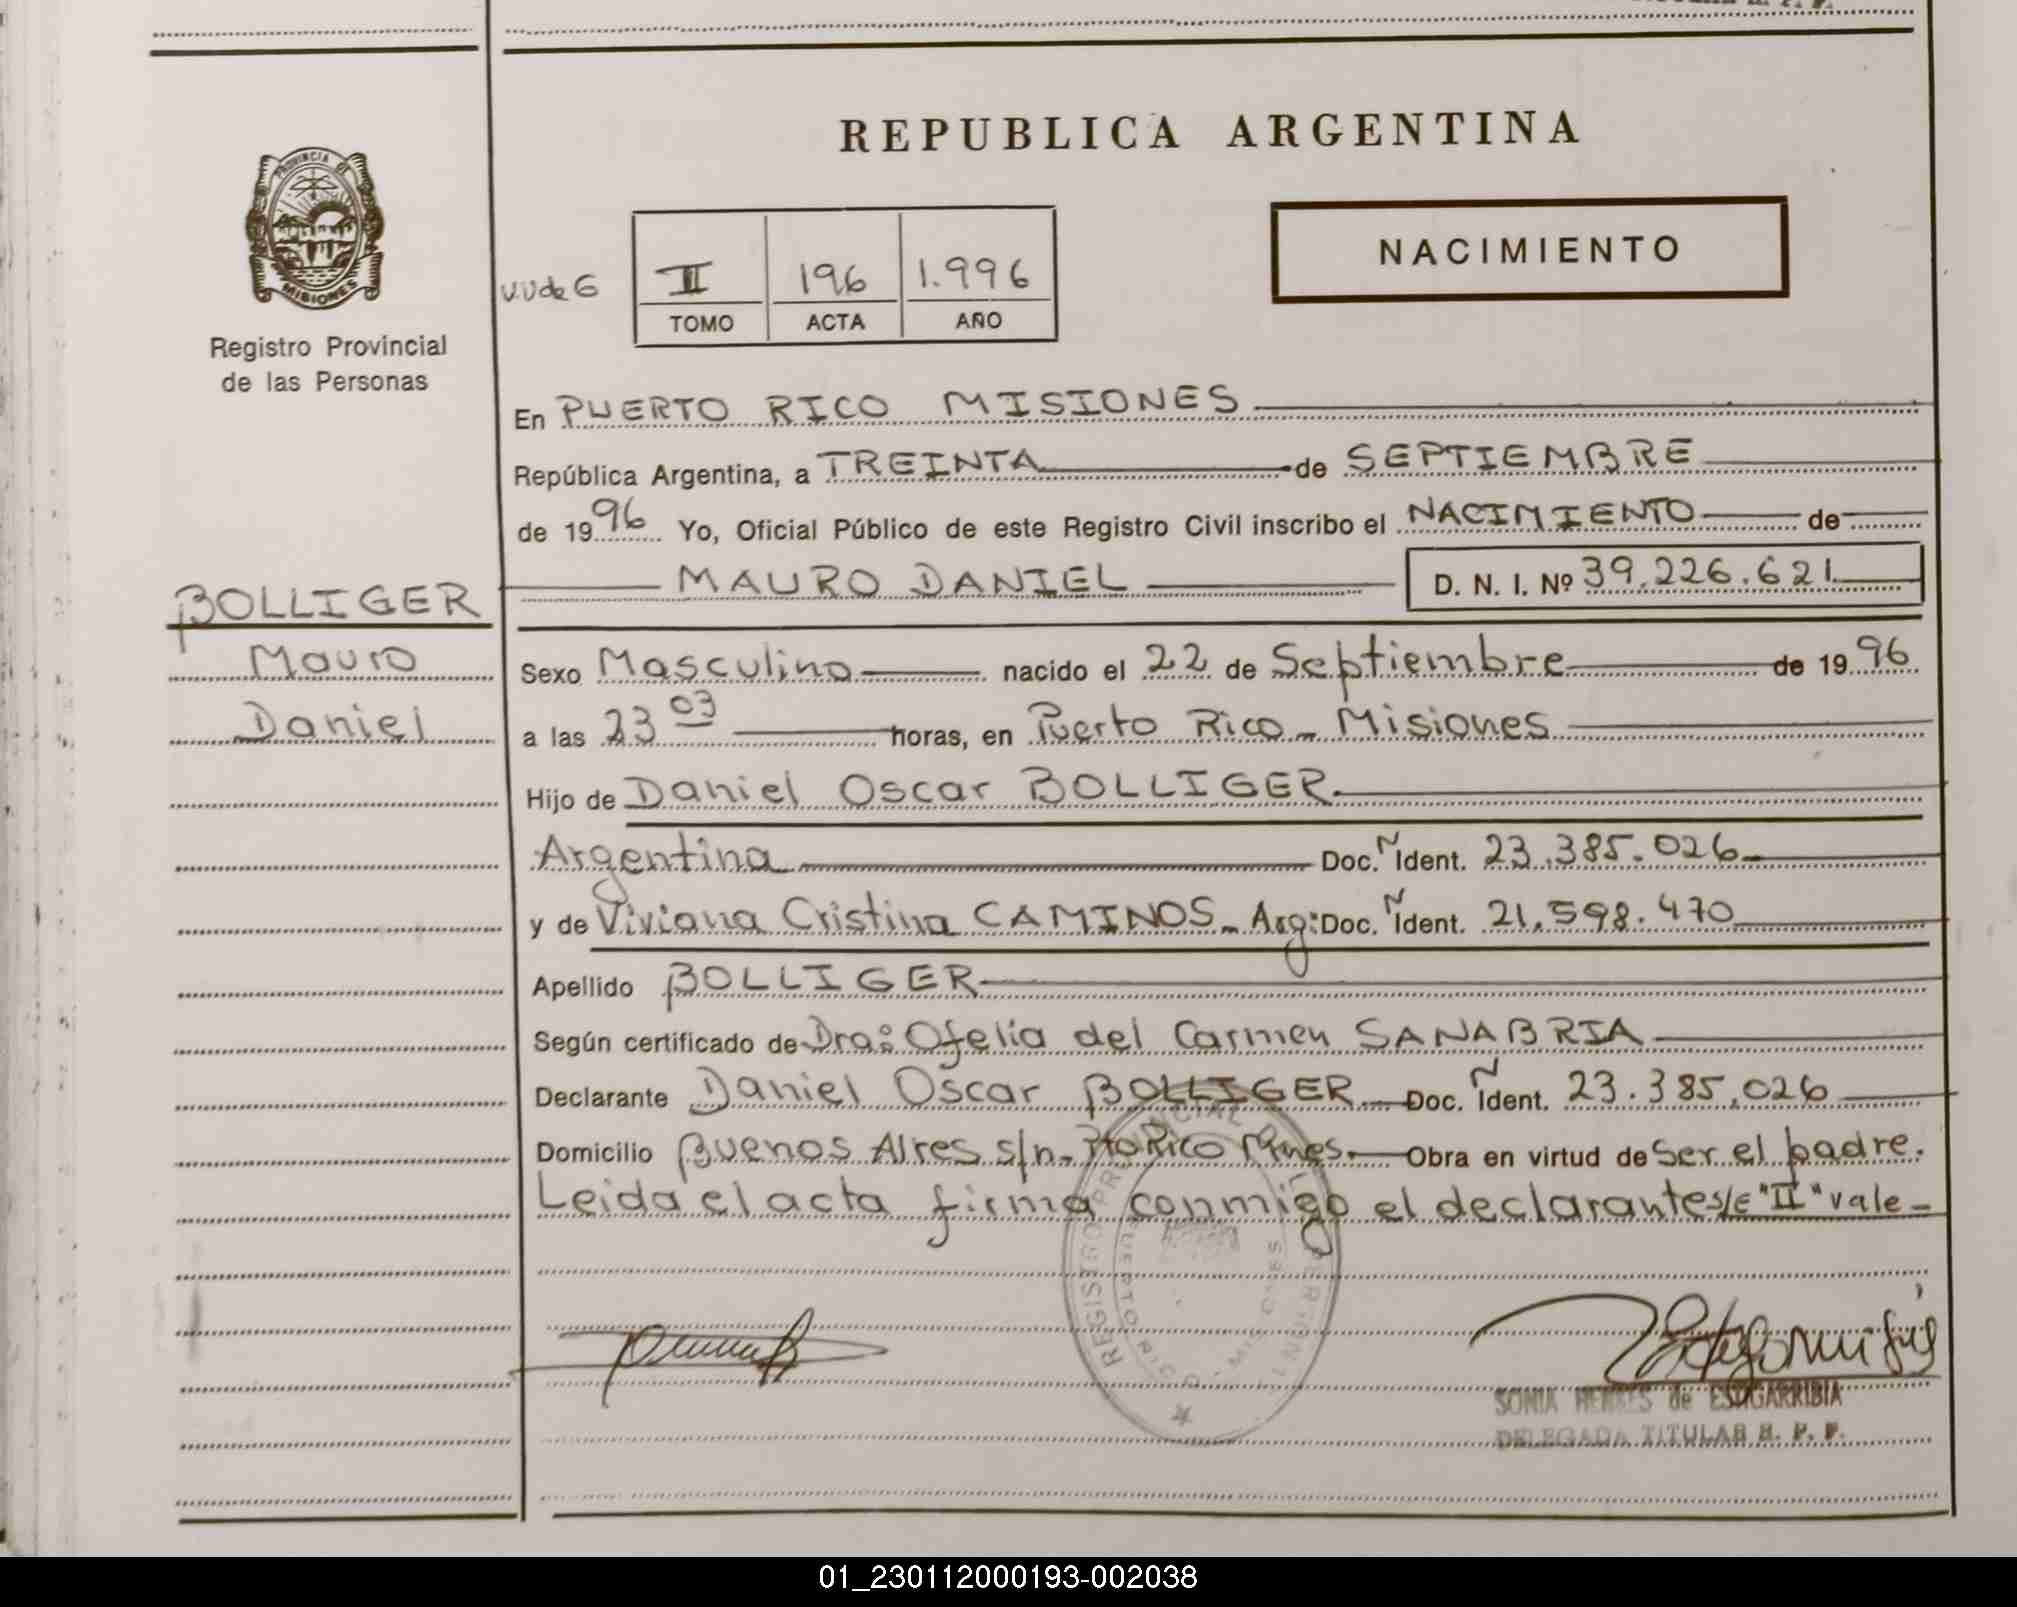 REPUBLICA ARGENTINA
PROVINCIA DE
MISIONES
Registro Provincial
de las Personas
NACIMIENTO
II 196 1.996
TOMO ACTA AÑO
En PUERTO RICO MISIONES
República Argentina, a TREINTA de SEPTIEMBRE
de 1996 Yo, Oficial Público de este Registro Civil inscribo el NACIMIENTO de
MAURO DANIEL D. N. I. Nº 39.226.621
BOLLIGER
Mauro
Daniel
Sexo Masculino nacido el 22 de Septiembre de 1996
a las 23 03 horas, en Puerto Rico - Misiones
Hijo de Daniel Oscar BOLLIGER
Argentina Doc. N Ident. 23.385.026
y de Viviana Cristina CAMINOS - Arg: Doc. N Ident. 21.598.470
Apellido BOLLIGER
Según certificado de Dra: Ofelia del Carmen SANABRIA
Declarante Daniel Oscar BOLLIGER Doc. N Ident. 23.385.026
Domicilio Buenos Aires s/n. Pto Rico Mnes. Obra en virtud de ser el padre.
Leida el acta firma conmigo el declarante s/e "II" vale-
REGISTRO PROVINCIAL
PUERTO RICO - MISIONES
SONIA de ESTIGARRIBIA
DELEGADA TITULAR R. P. P.
01_230112000193-002038